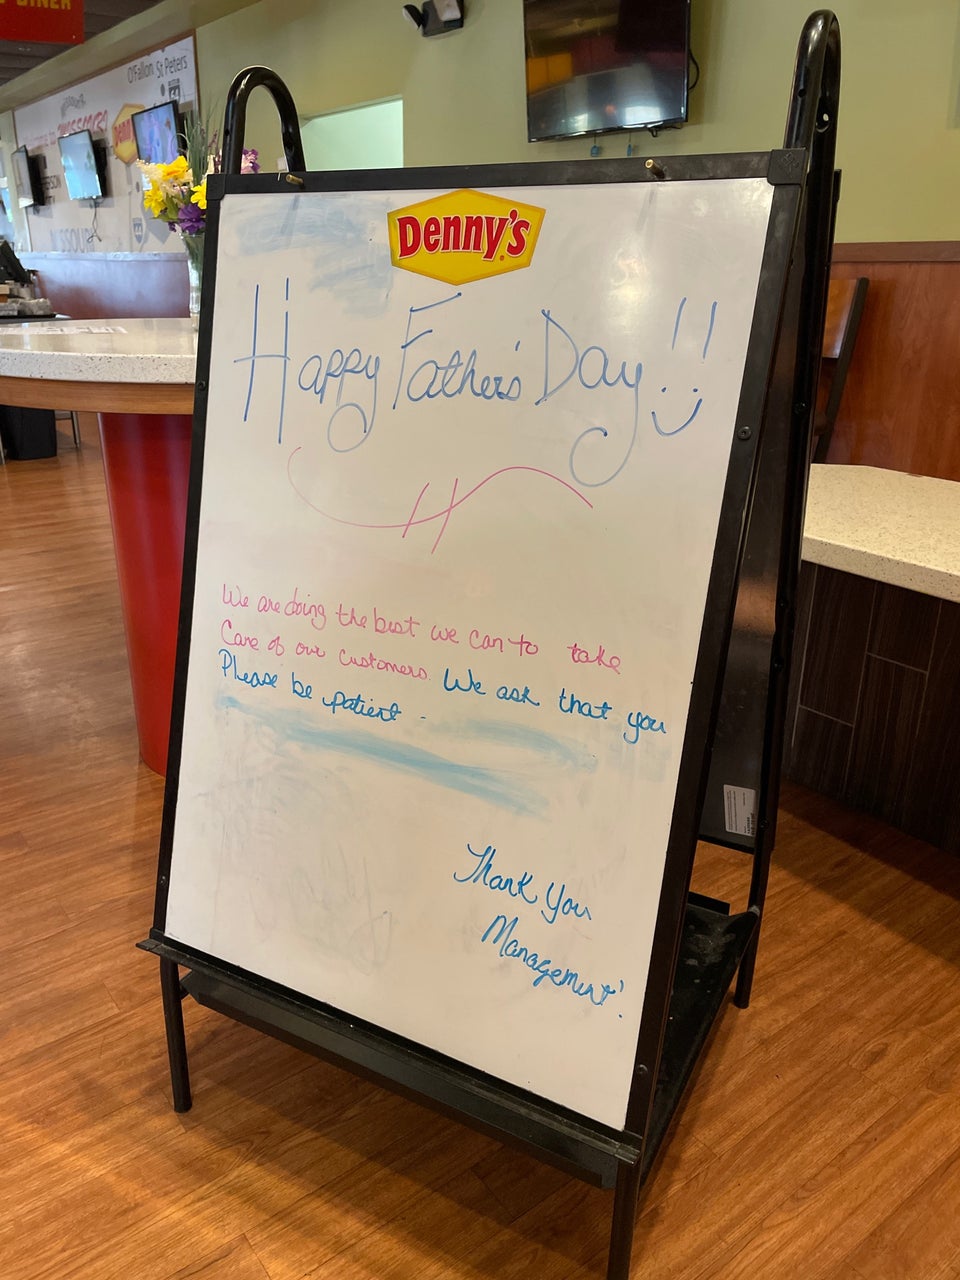 DINER
O'Fallon St Peters
MISSOURI
Denny's
Happy Father's Day!!
We are doing the best we can to take
Care of our customers. We ask that you
Please be patient.
Thank You
Management!